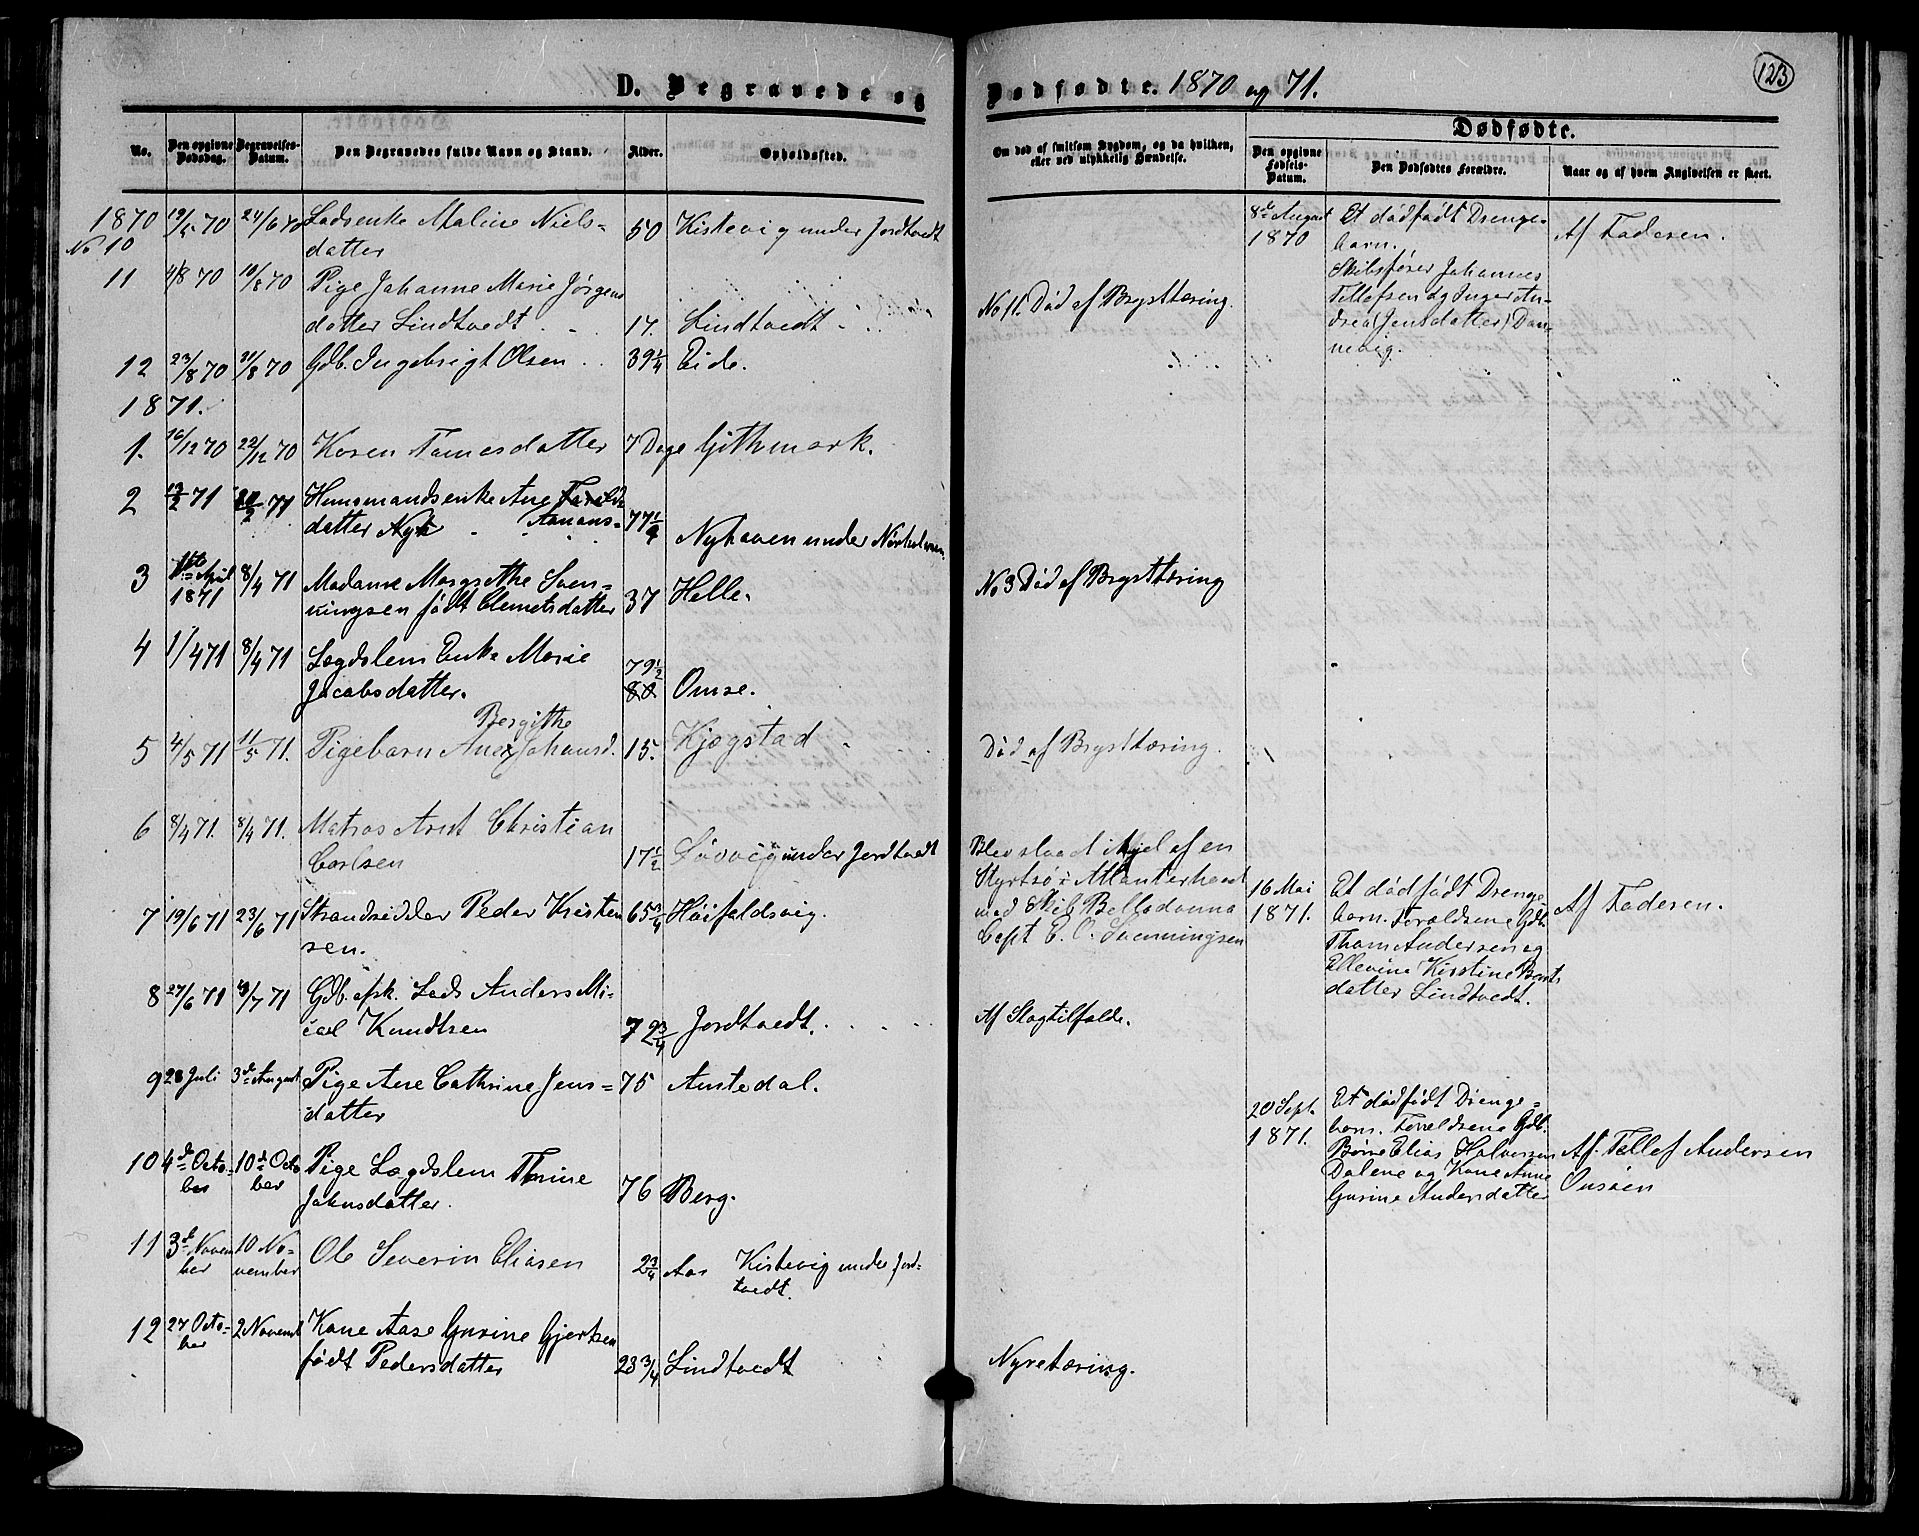 D. Begravede og Dødfødte. 1870 og 71.
123
No.
Den opgivne Dødsdag.
Begravelses-Datum.
Den Begravedes fulde Navn og Stand.
Alder.
Opholdssted.
Om død af smitsom Sygdom, og da hvilken, eller ved ulykkelig Hændelse.
Dødfødte.
Den opgivne Fødsels-Datum.
Den Dødfødtes Forældre.
Naar og af hvem Angivelsen er skeet.
1870
No 10 70 24/6 70 Ladsenke Maline Niels=
datter 50 Kistevig under Jordtvedt
11 4/8 70 10/8 70 Pige Johanne Marie Jørgens
datter Lindtvedt 17. Lindtvedt
No 11. Død af Brysttæring.
12 23/8 70 /8 70 Gdb. Ingebrigt Olsen 39 1/4 Eide.
1871.
1. 16/12 70 22/12 70 Karen Tomesdatter 7 Dage Githmark.
2 13/2 71 /2 71 Huusmandsenke Ane
datter Aanons= 77 1/4 Nyhaven under Nørholmen
3 1ste April 1871 8/4 71 Madame Margrethe Sven=
ningsen født Clemetsdatter 37 Helle.
No 3 Død af Brysttæring
4 1/4 71 8/4 71 Lægdslem Enke Marie
Jacobsdatter. 79 1/2 80. Omse.
Bergithe
5 4/5 71 11/5 71. Pigebarn Ane Johansd. 15. Kjøgstad
Død af Brysttæring.
6 8/4 71. 8/4 71. Matros Arnt Christian
Carlsen 17 1/2 under Jordtvedt
Blev slaad ihjel af en
Styrtsø i Atlanterhavet
med Skib Belladonna
Capt E. C. Svenningsen
7 19/6 71 23/6 71 Strandsidder Peder Kristen
sen. 65 3/4 Høifaldsvig.
8 27/6 71 /7 71 Gdb. afsk. Lods Anders Mi=
cal Knudtsen 72 3/4 Jordtvedt.
Af Slagtilfælde.
9 28 Juli 3de August Pige Ane Cathrine Jens=
datter 75 Amtedal.
10 4de Octo=
ber 10de Octo
ber Pige Lægdslem Thrine
Jahnsdatter. 76 Berg.
11 3de Novem
ber 10 No=
vember Ole Severin Eliasen 2 3/4 Aar Kistevig under Jord=
tvedt.
12 27 Octo=
ber 2 Novemb Kone Aase Gurine Gjertsen
født Pedersdatter 23 3/4 Lindtvedt
Nyretæring.
8de August
1870
Et dødfødt Drenge=
barn.
Skibsfører Johannes
Tellefsen og Inger An=
drea (Jensdatter) Dan=
nevig.
Af Faderen.
16 Mai
1871.
Et dødfødt Drenge
barn. Foreldrene Gdb.
Thom Andersen og
Ellevine Kirstine Bents
datter Lindtvedt.
Af Faderen.
20 Sept.
1871.
Et dødfødt Drenge=
barn. Foreldrene Gdb.
Børre Elias Halvorsen
Dalene og Kone Anne
Gurine Andersdatter
Af Tellef Andersen
Onsøen